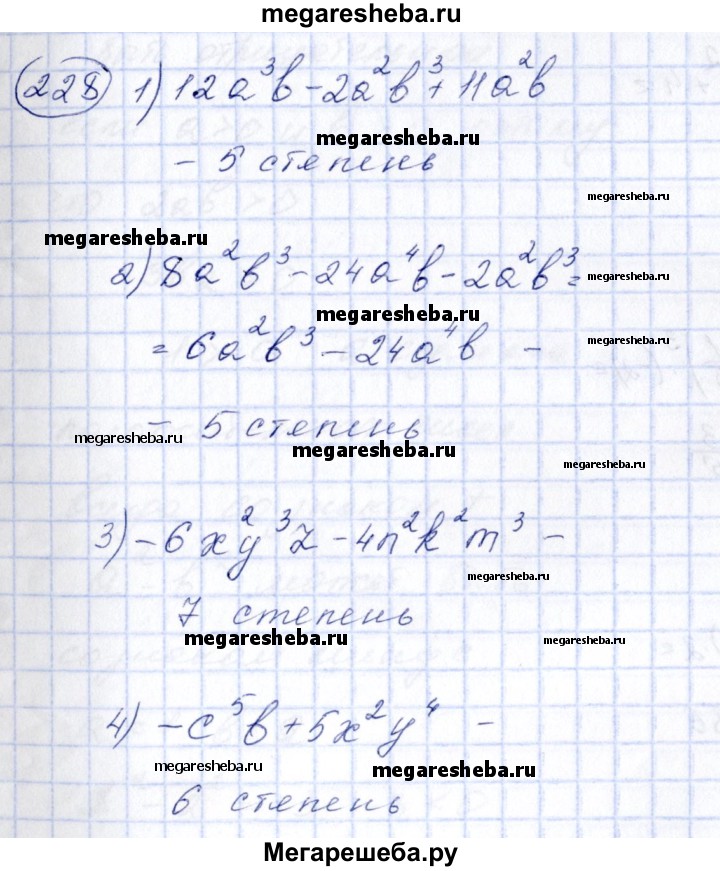 megaresheba.ru
228 1) 12a³b - 2a²b³ + 11a²b
megaresheba.ru
- 5 степень
megaresheba.ru
megaresheba.ru
2) 8a²b³ - 24a⁴b - 2a²b³ =
megaresheba.ru
megaresheba.ru
= 6a²b³ - 24a⁴b -
megaresheba.ru
- 5 степень
megaresheba.ru
megaresheba.ru
megaresheba.ru
3) - 6xy²³z - 4n²k²m³ -
megaresheba.ru
7 степень
megaresheba.ru
megaresheba.ru
4) - c⁵b + 5x²y⁴ -
megaresheba.ru
megaresheba.ru
- 6 степень
Мегарешеба.ру